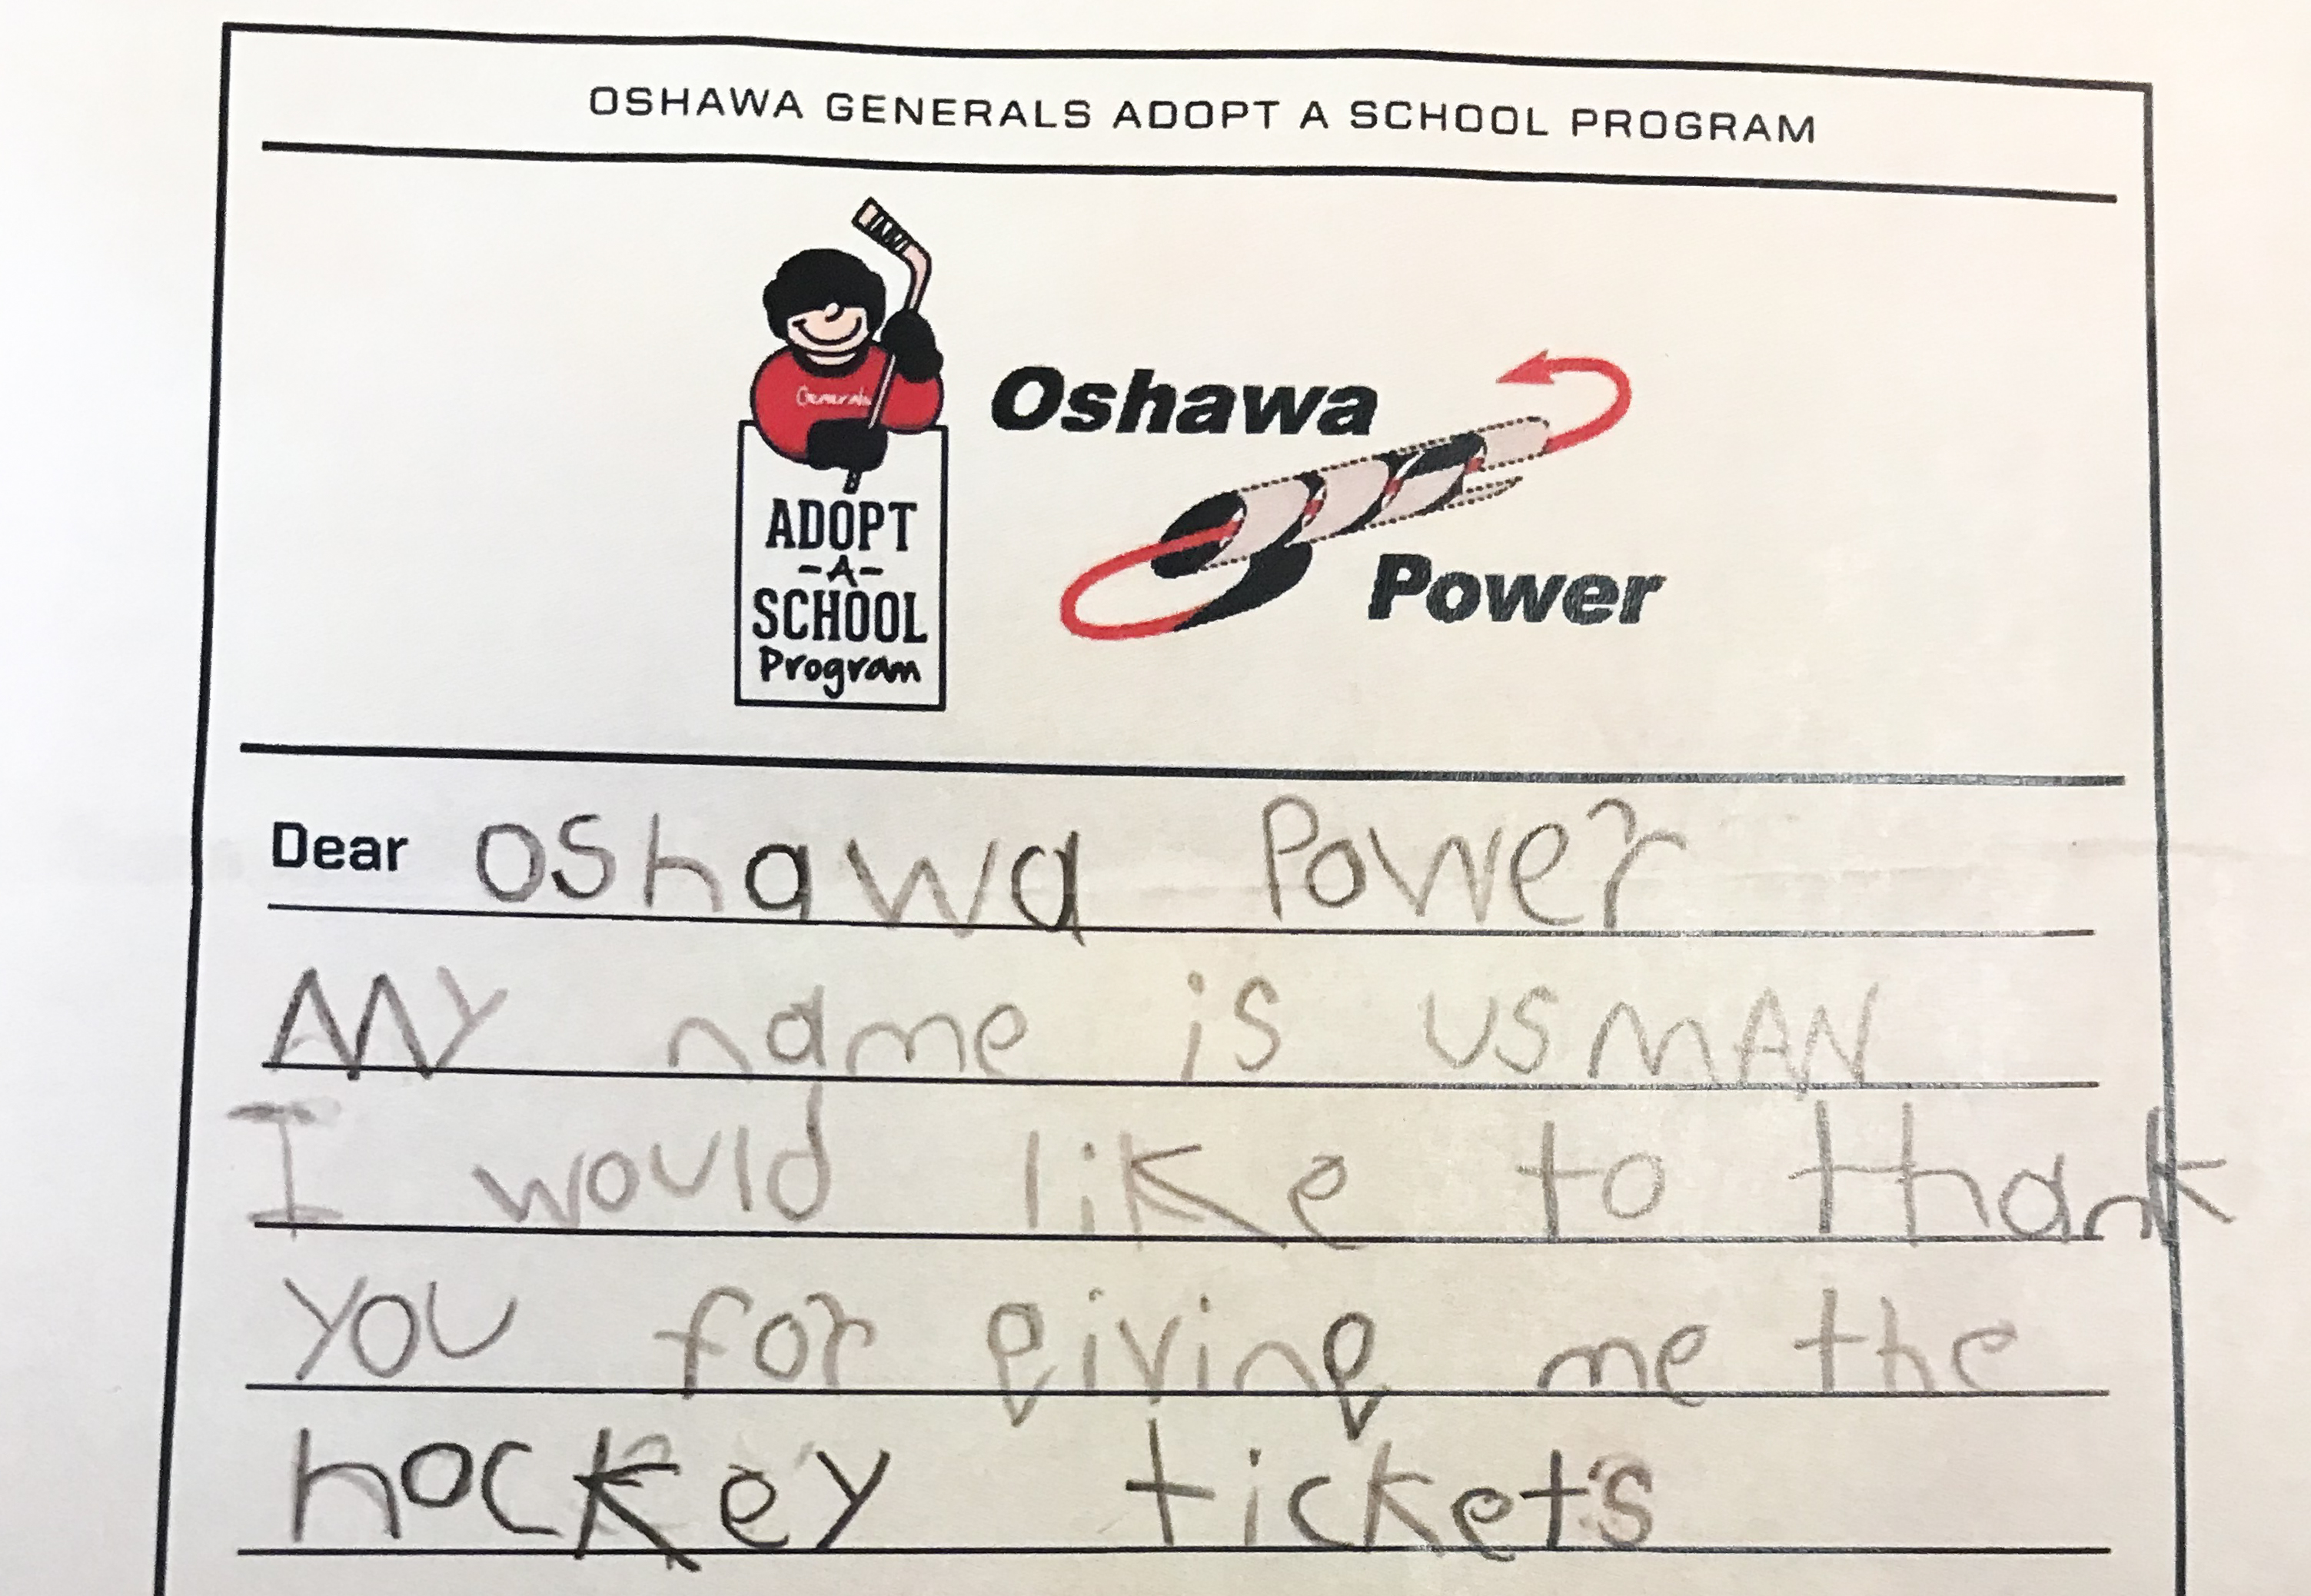 OSHAWA GENERALS ADOPT A SCHOOL PROGRAM
Generals
Oshawa
ADOPT
-A-
SCHOOL
Program
Power
Dear Oshawa Power
My name is USMAN
I would like to thank
you for giving me the
hockey tickets